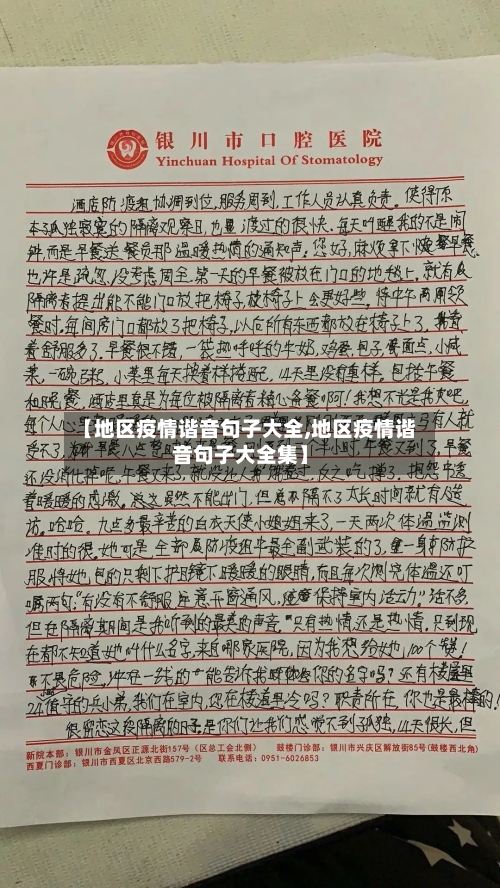 银川市口腔医院
Yinchuan Hospital Of Stomatology
酒店防疫组协调到位,服务周到,工作人员认真负责。使得原
本孤独寂寞的隔离观察日,也是渡过的很快。每天叫醒我的不是闹
钟,而是早餐送餐员那温暖热情的通知声:您好,麻烦拿下
也许是疏忽,没考虑周全.第一天的早餐被放在门口的地毯上,就有
隔离者提出能不能门口放把椅子,放椅子上会更好些,待中午再用领
餐时,每间房门口都放了把椅子,以后所有东西都放在椅子上了,
着舒服多了,早餐很不错,一袋热呼呼的牛奶,鸡蛋,包子,餐面点,小咸
菜,一碗。小菜是每天换着样搭配,14天里没有重样。包括午餐
和晚餐
每个人心
【地区疫情谐音句子大全,地区疫情谐
音句子大全集】
受不了,
还没消化掉呢,午餐又来了,
着暖暖的感激。总之虽然不能出门,但离开隔不了太长时间就有人造
访。哈哈。九点多最辛苦的白衣天使小姐姐来了,一天两次体温监测
准时的很。她可是全部在防疫组中最全副武装的了,一身防护
服将她包的只剩下护目镜下暖暖的眼睛,而且每次测完体温还叮
嘱两句:"有没有不舒服,注意开窗通风,保持室内活动"话不多,
但在隔离期间是我听到的最美的声音。只有热情还是热情。只到现
在都不知道她叫什么名字,来自哪家医院,因为我想给她,100个赞!
不畏危险,冲在一线的"能告诉我您的名字吗?还有楼
24值守的兵小弟,我们在室内,您在楼道里冷吗?职责所在,你也是最棒的!
很留恋这段隔离的日子,是你们让我们感觉不到孤独,14天很长,但
新院本部:银川市金凤区正源北街157号(区总工会北侧) 鼓楼门诊部:银川市兴庆区解放街85号(鼓楼西北角)
西夏门诊部:银川市西夏区北京西路579-2号 联系电话:0951-6026853